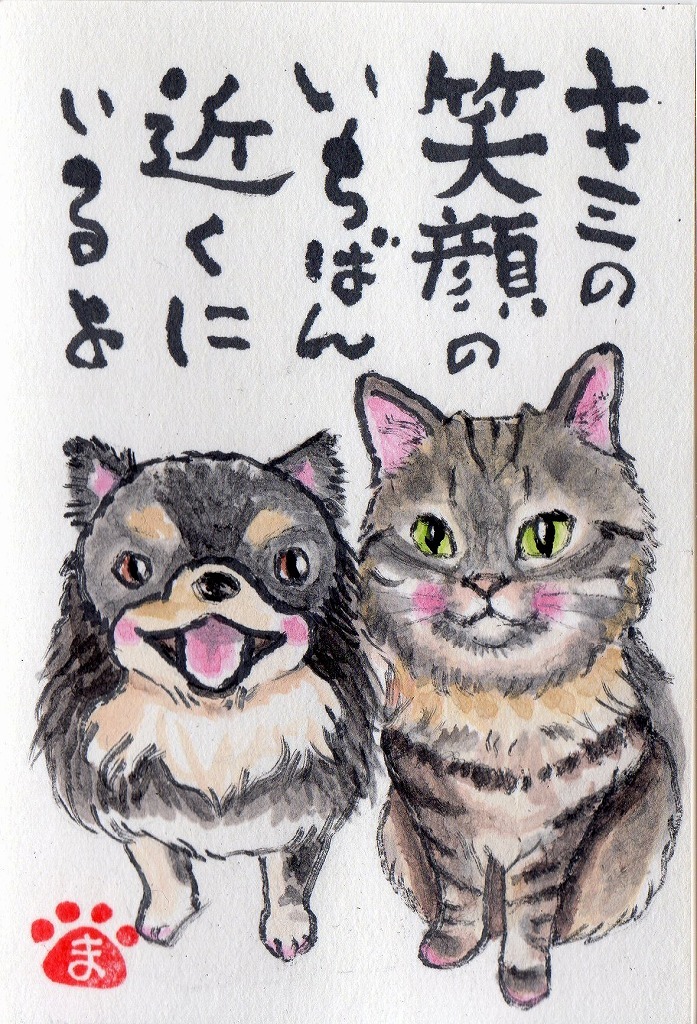 キミの
笑顔の
いちばん
近くに
いるよ
ま